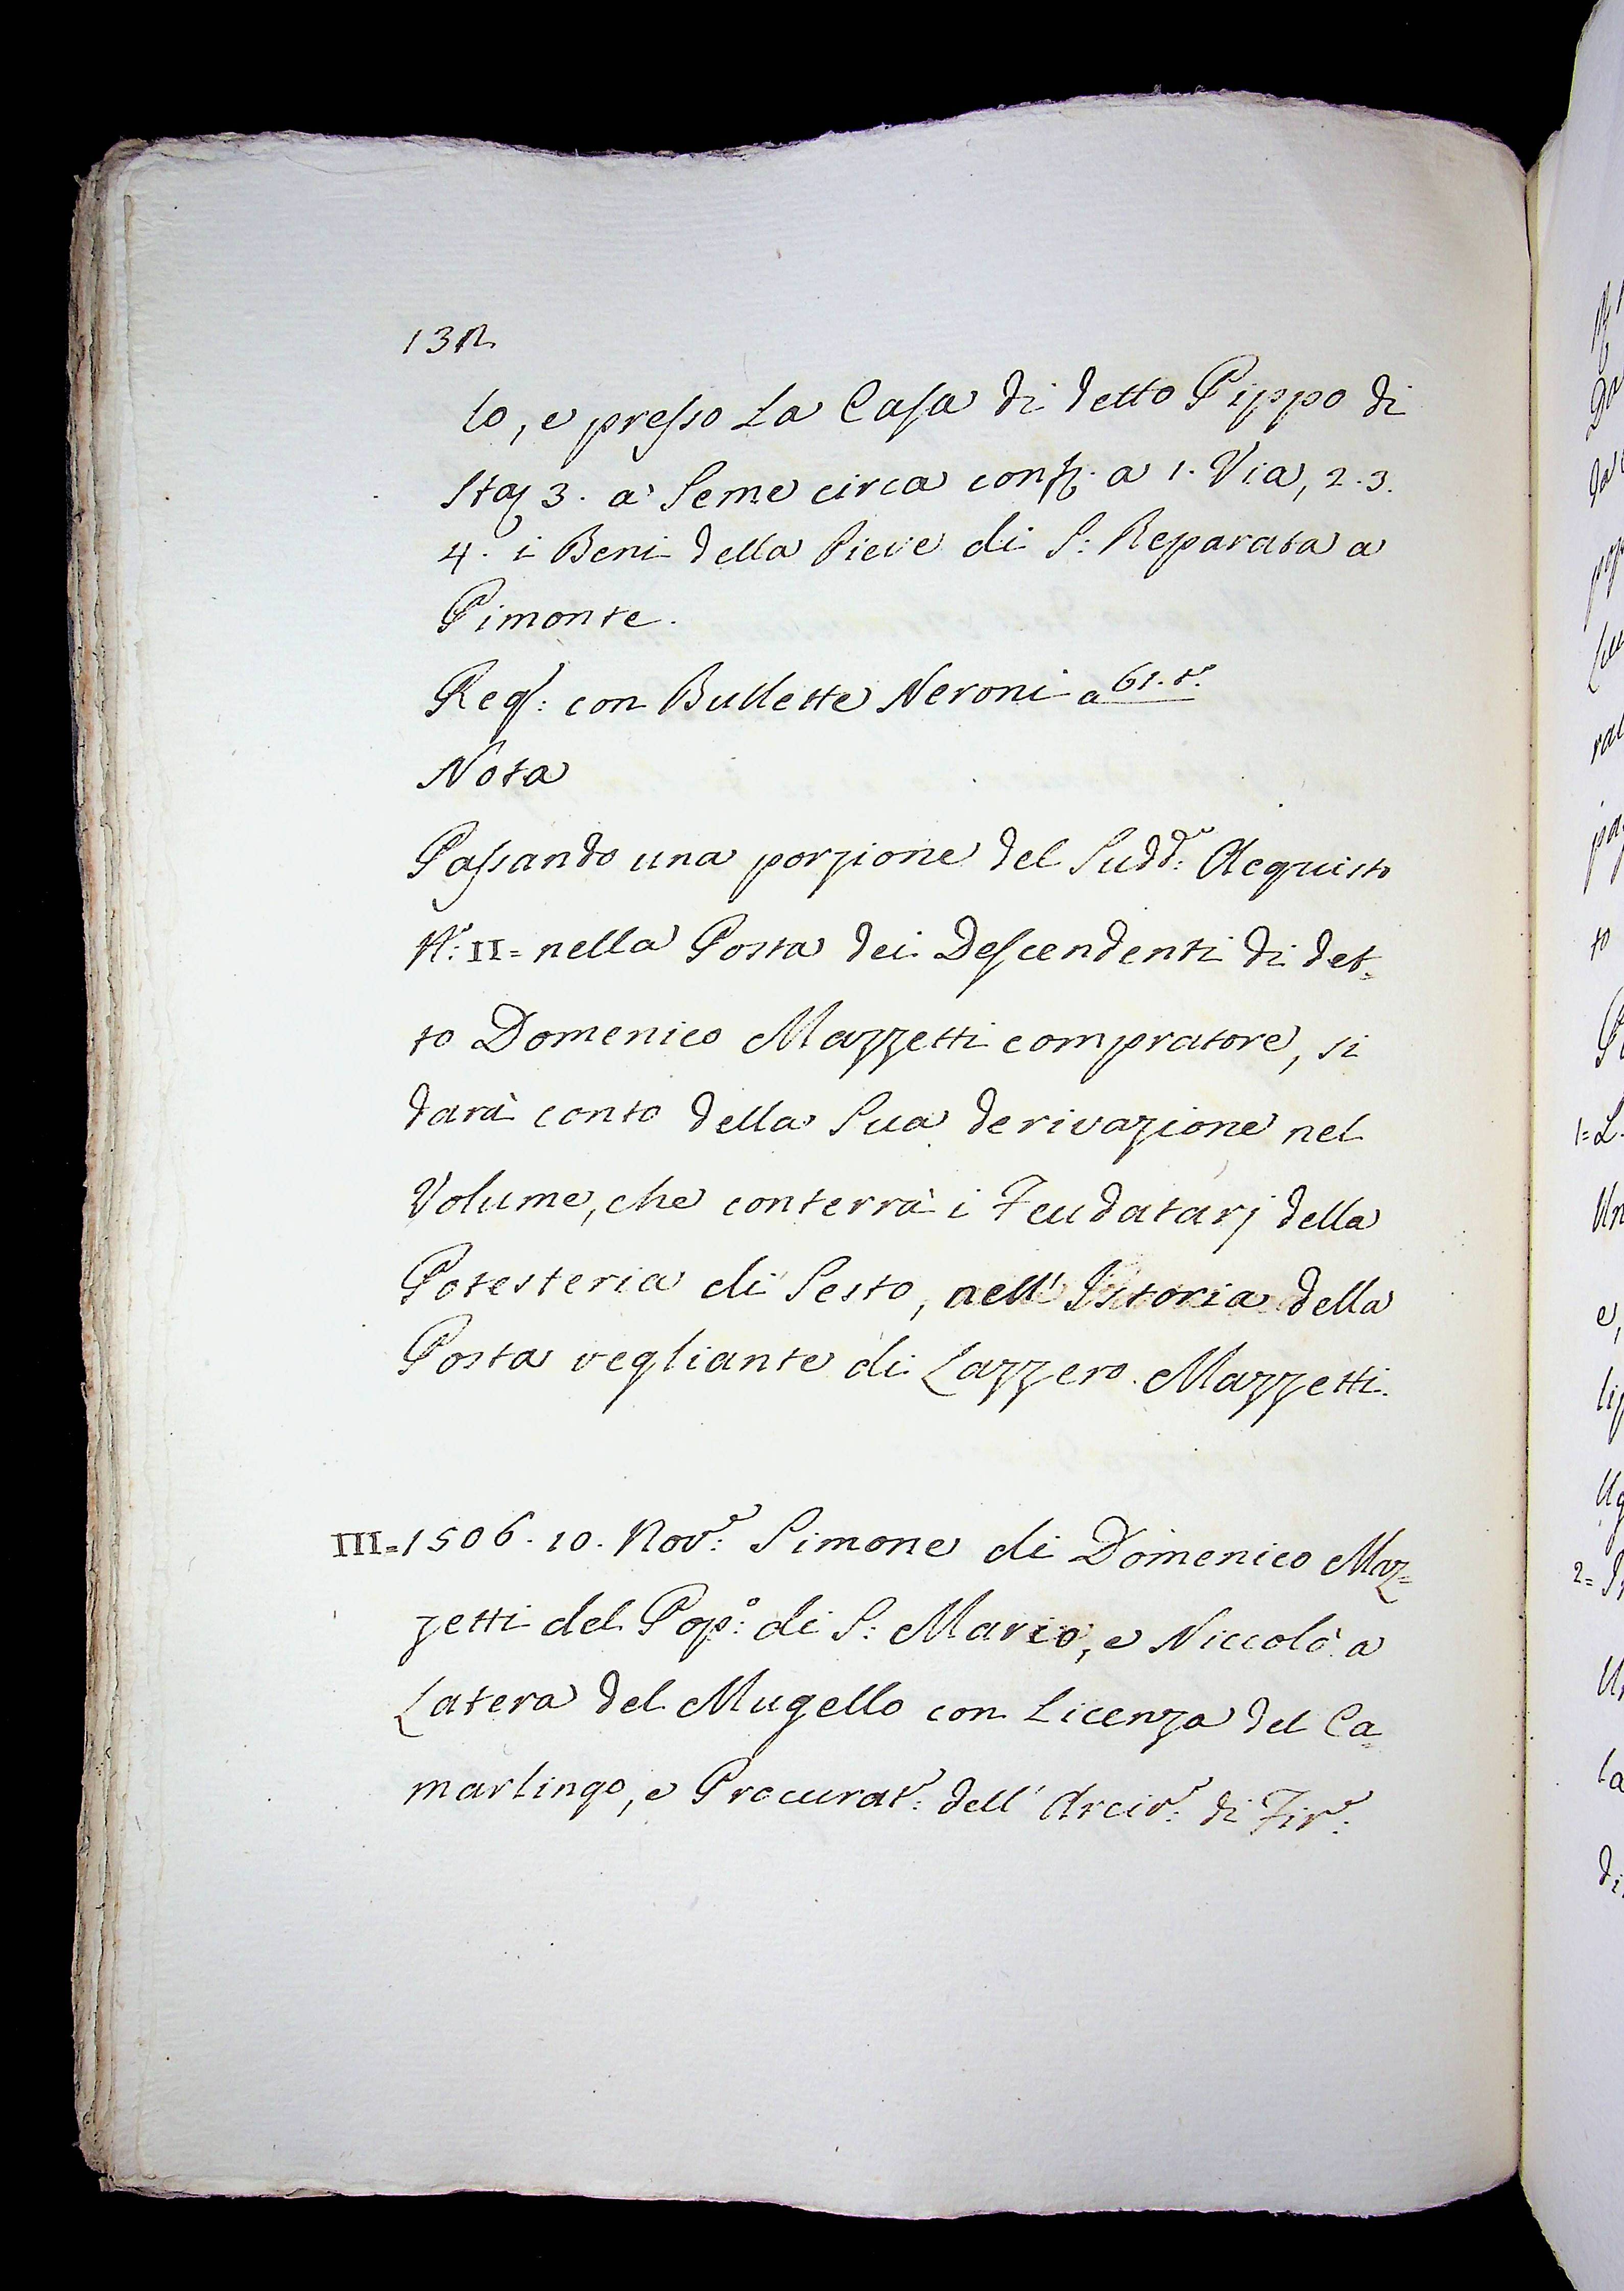 132
lo, e presso La Casa di detto Pippo di
Staj 3. a Seme circa conf. a 1. Via, 2. 3.
4. i Beni della Pieve di S: Reparata a
Pimonte.
Reg: con Bullette Neroni a 61. t.
Nota
Passando una porzione del Sudd.º: Acquisto
N.º: II= nella Posta dei Descendenti di det=
to Domenico Mazzetti compratore, si
darà conto della Sua derivazione nel
Volume, che conterrà i Feudatarj della
Potesteria di Sesto, nell' Istoria della
Posta vegliante di Lazzero Mazzetti.
III=1506. 10. Nov.e: Simone di Domenico Maz=
zetti del Pop.º: di S: Mario, e Niccolò a
Latera del Mugello con Licenza del Ca=
marlingo, e Procurat.e: dell' Arciv.o: di Fir.e:
1=
2=